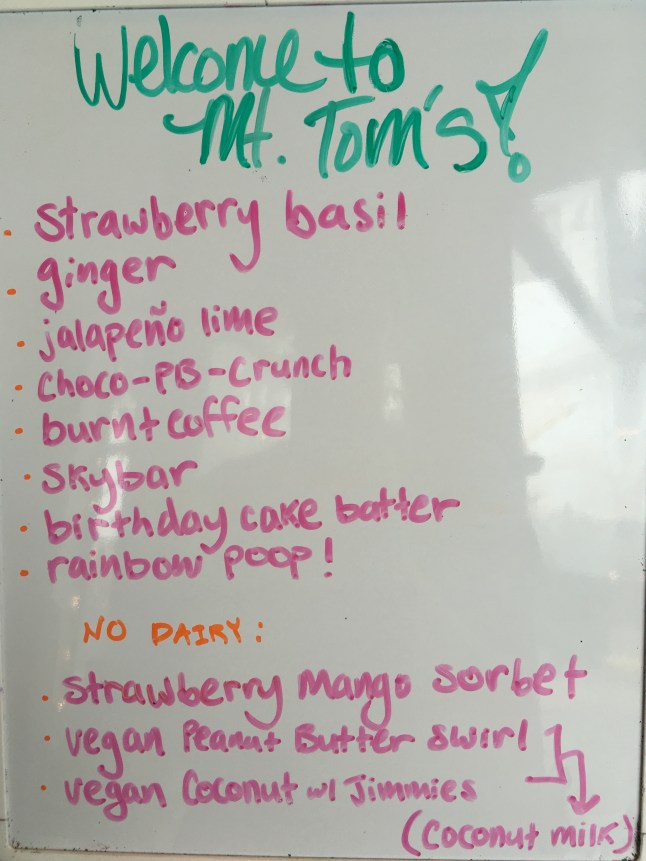 Welcome to
Mt. Tom's!
• strawberry basil
• ginger
• jalapeño lime
• choco-PB-crunch
• burnt coffee
• skybar
• birthday cake batter
• rainbow poop!
NO DAIRY:
• strawberry Mango sorbet
• vegan Peanut Butter swirl
• vegan Coconut w/ Jimmies
(Coconut milk)